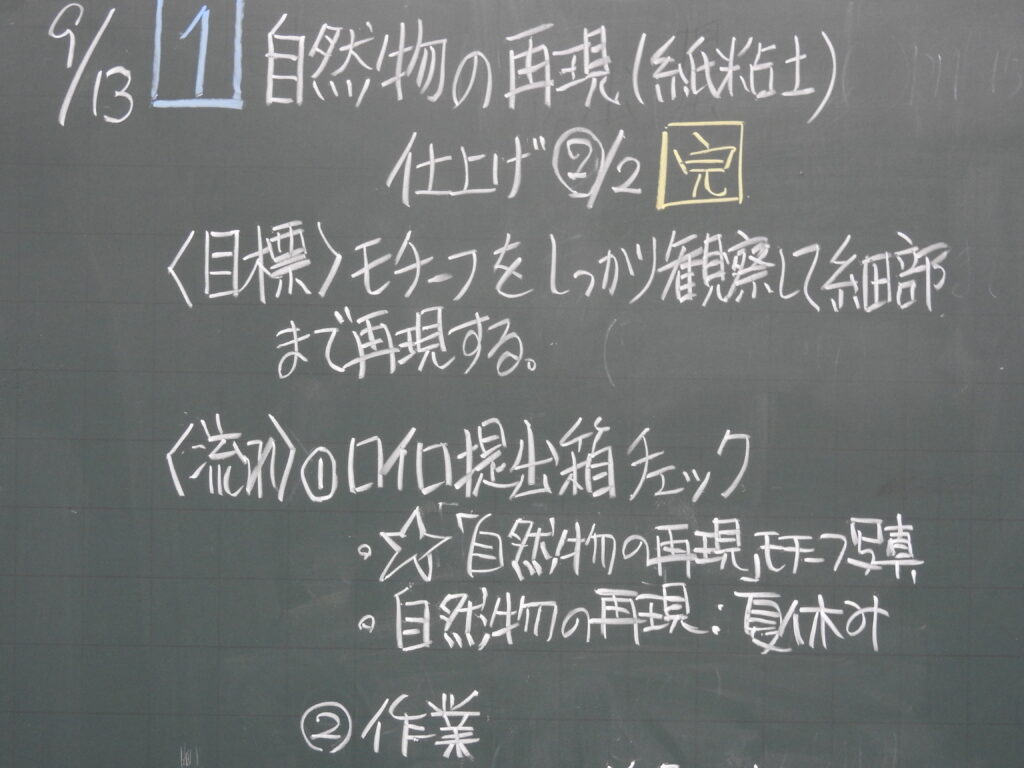 9/13 1 自然物の再現(紙粘土)
仕上げ②/2 完
〈目標〉モチーフをしっかり観察して細部
まで再現する。
〈流れ〉①ロイロ提出箱チェック
・☆「自然物の再現」モチーフ写真
・自然物の再現:夏休み
②作業